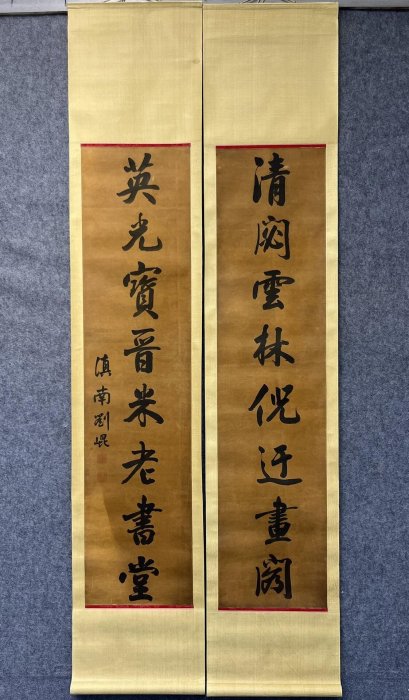 清閟雲林倪迂畫閣
英光寶晋米老書堂
滇南劉崐